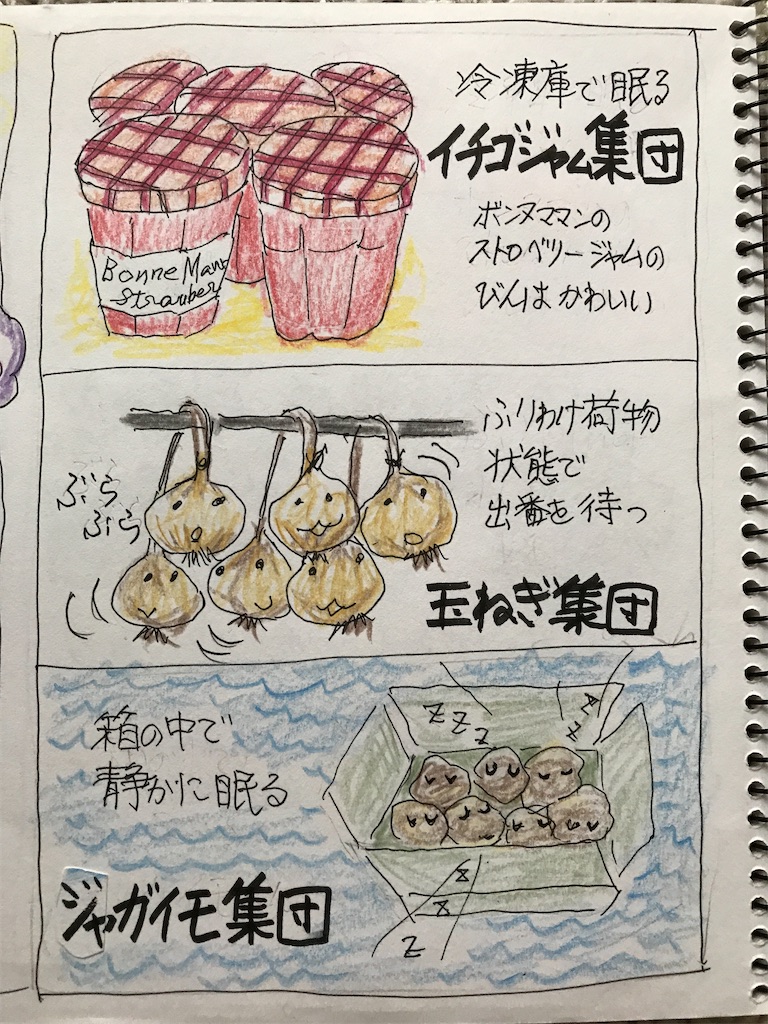 冷凍庫で眠る
イチゴジャム集団
ボンヌママンの
ストロベリージャムの
びんはかわいい
Bonne Mam
Strawber
ふりわけ荷物
状態で
出番を待つ
ぶらぶら
玉ねぎ集団
箱の中で
静かに眠る
Z Z Z
Z Z Z
ジャガイモ集団
Z
Z
Z